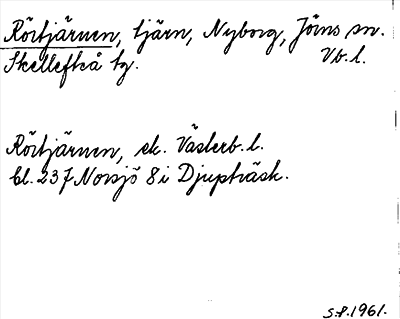 Rörtjärnen, tjärn, Nyborg, Jörns sn.
Skellefteå tg. Vb.l.
Rörtjärnen, ek. Västerb. l.
bl. 237 Norsjö 8i Djupträsk.
S.P. 1961.